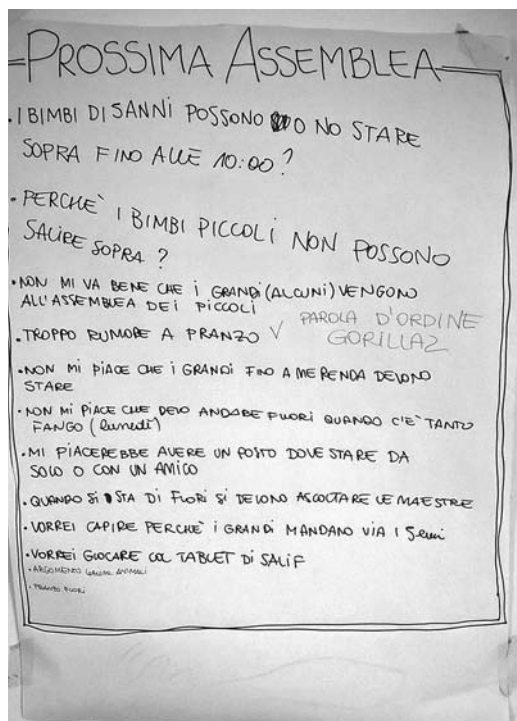 PROSSIMA ASSEMBLEA
• I BIMBI DI 5ANNI POSSONO O NO STARE
SOPRA FINO ALLE 10:00?
• PERCHE' I BIMBI PICCOLI NON POSSONO
SALIRE SOPRA?
• NON MI VA BENE CHE I GRANDI (ALCUNI) VENGONO
ALL'ASSEMBLEA DEI PICCOLI
• TROPPO RUMORE A PRANZO V PAROLA D'ORDINE
GORILLAZ
• NON MI PIACE CHE I GRANDI FINO A MERENDA DEVONO
STARE
• NON MI PIACE CHE DEVO ANDARE FUORI QUANDO C'E' TANTO
FANGO (lunedì)
• MI PIACEREBBE AVERE UN POSTO DOVE STARE DA
SOLO O CON UN AMICO
• QUANDO SI STA DI FUORI SI DEVONO ASCOLTARE LE MAESTRE
• VORREI CAPIRE PERCHE' I GRANDI MANDANO VIA I Semi
• VORREI GIOCARE COL TABLET DI SALIF
• ARGOMENTO ANIMALI
• PRANZO FUORI